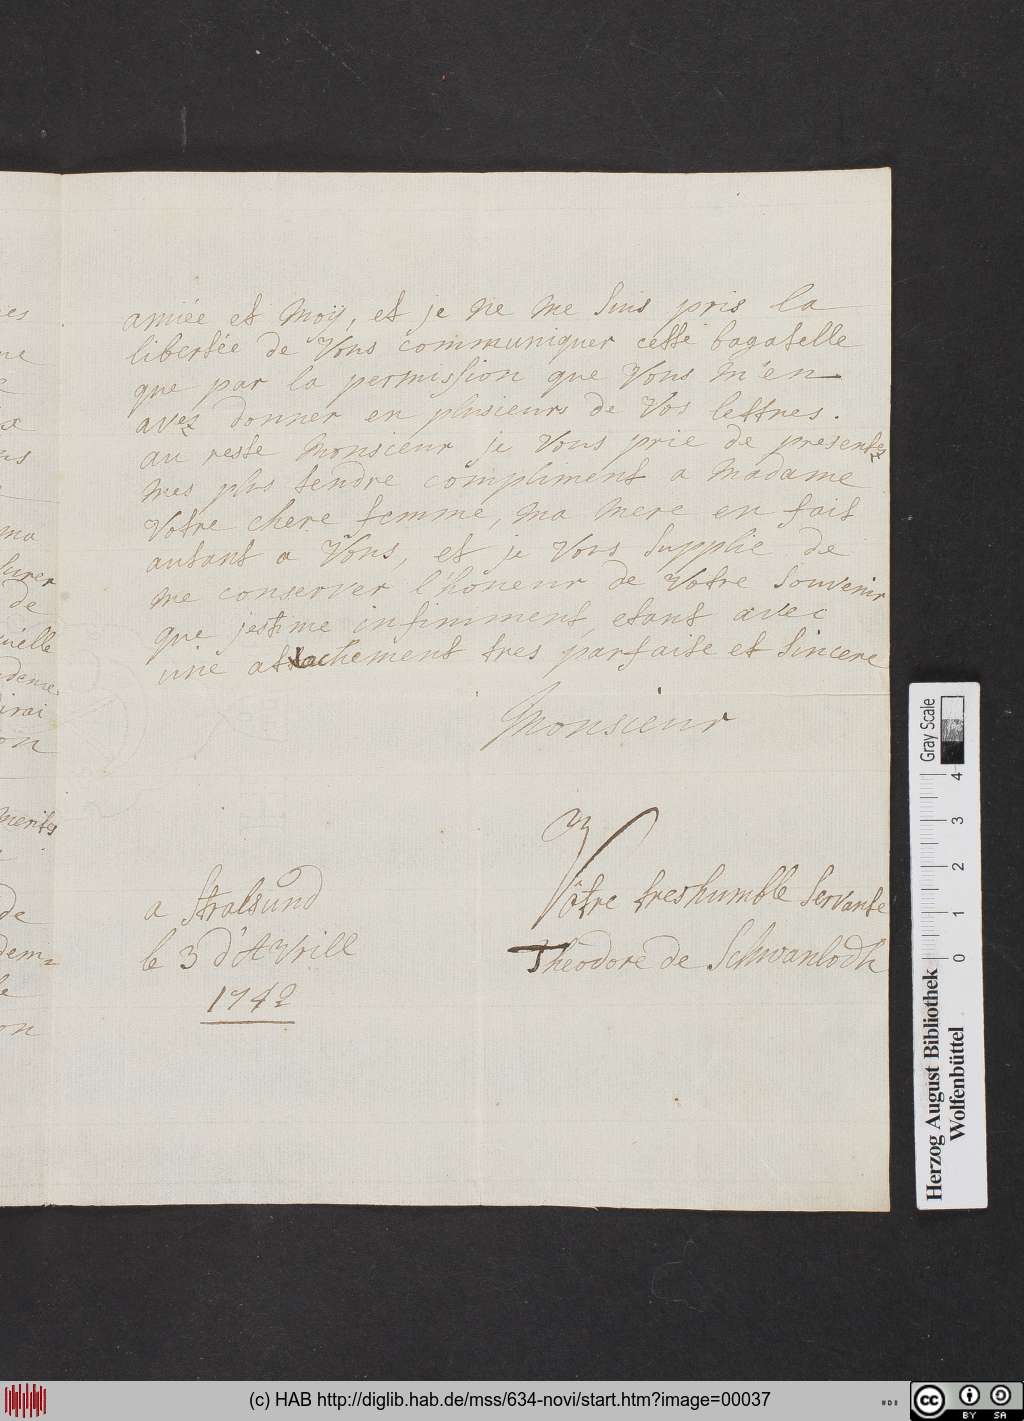 amiée et Moÿ, et je ne me suis pris la
libertée de Vous communiquer cette bagatelle
que par la permission que Vous m'en
avez donner en plusieurs de Vos lettres.
au reste Monsieur je Vous prie de presentes
mes plus tendre compliment a Madame
Votre chere femme, ma mere en fait
autant a Vous, et je Vous supplie de
me conserver l'hōneur de Votre souvenir
que jestime infinment, etant avec
une attachement tres parfaite et sincere
Monsieur
Vôtre treshumble servante
Theodore de Schwanlodh
a Stralsund
le 3 d'Avrill
1742
ma
de
irai
on
merites
de
dem=
on
Gray Scale
0 1 2 3 4
Herzog August Bibliothek
Wolfenbüttel
(c) HAB http://diglib.hab.de/mss/634-novi/start.htm?image=00037
cc BY SA